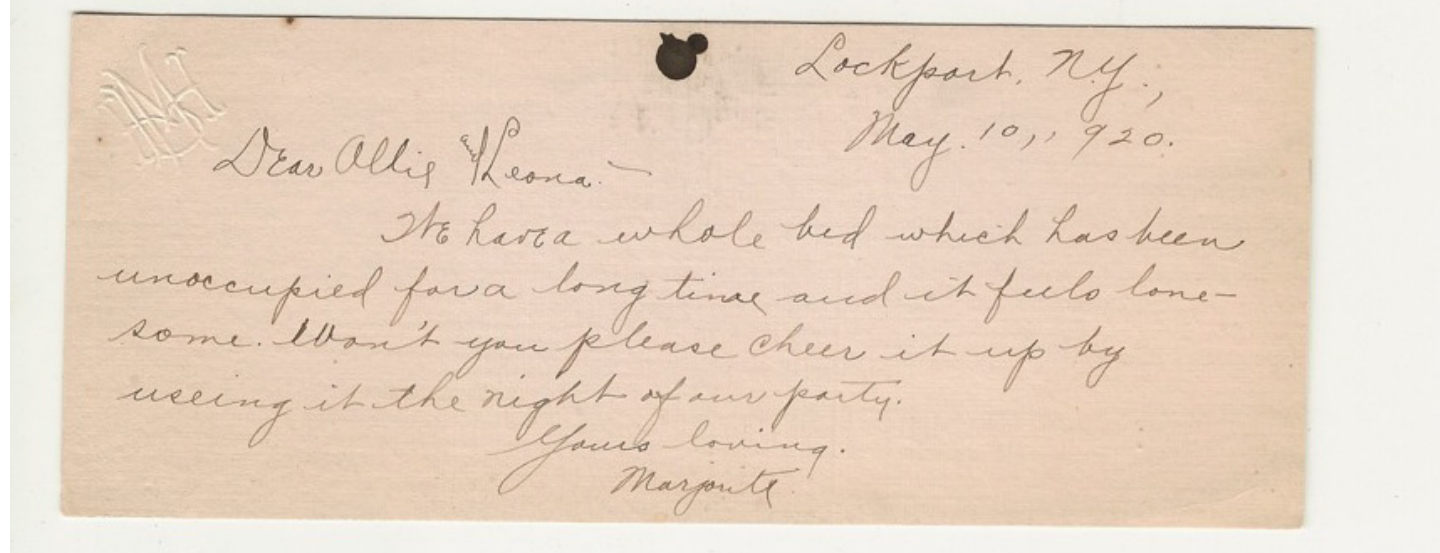 Lockport, N.Y.,
May. 10, 1920.
Dear Ollie and Leona.—
We have a whole bed which has been
unoccupied for a long time and it feels lone-
some. Won't you please cheer it up by
useing it the night of our party.
Yours loving.